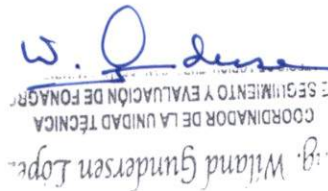 g. Wiland Gundersen López
COORDINADOR DE LA UNIDAD TÉCNICA
E SEGUIMIENTO Y EVALUACIÓN DE FONAGR
W.